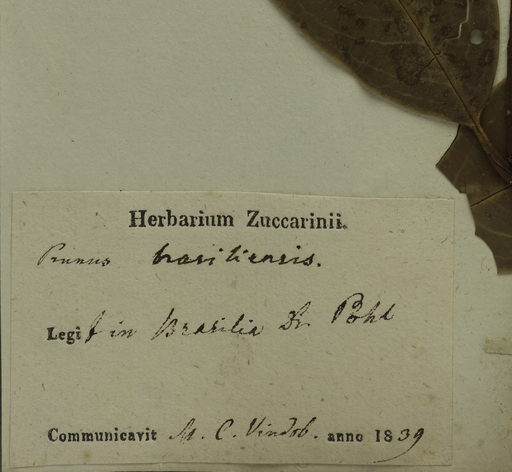 Herbarium Zuccarinii.
Prunus brasiliensis.
Legit in Brasilia Dr. Pohl
Communicavit M. C. Vindob. anno 1839